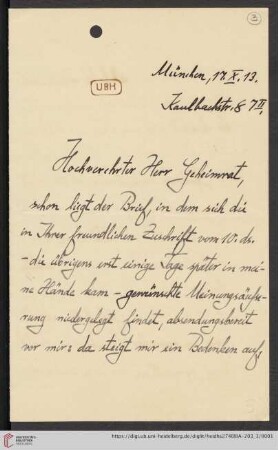 3
UBH
München, 17. X. 13.
Kaulbachstr. 8 7II,
Hochverehrter Herr Geheimrat,
schon liegt der Brief, in dem sich die
in Ihrer freundlichen Zuschrift vom 10. ds.
- die übrigens erst einige Tage später in mei-
ne Hände kam - gewünschte Meinungsäuße-
rung niedergelegt findet, absendungsbereit
vor mir: da steigt mir ein Bedenken auf,